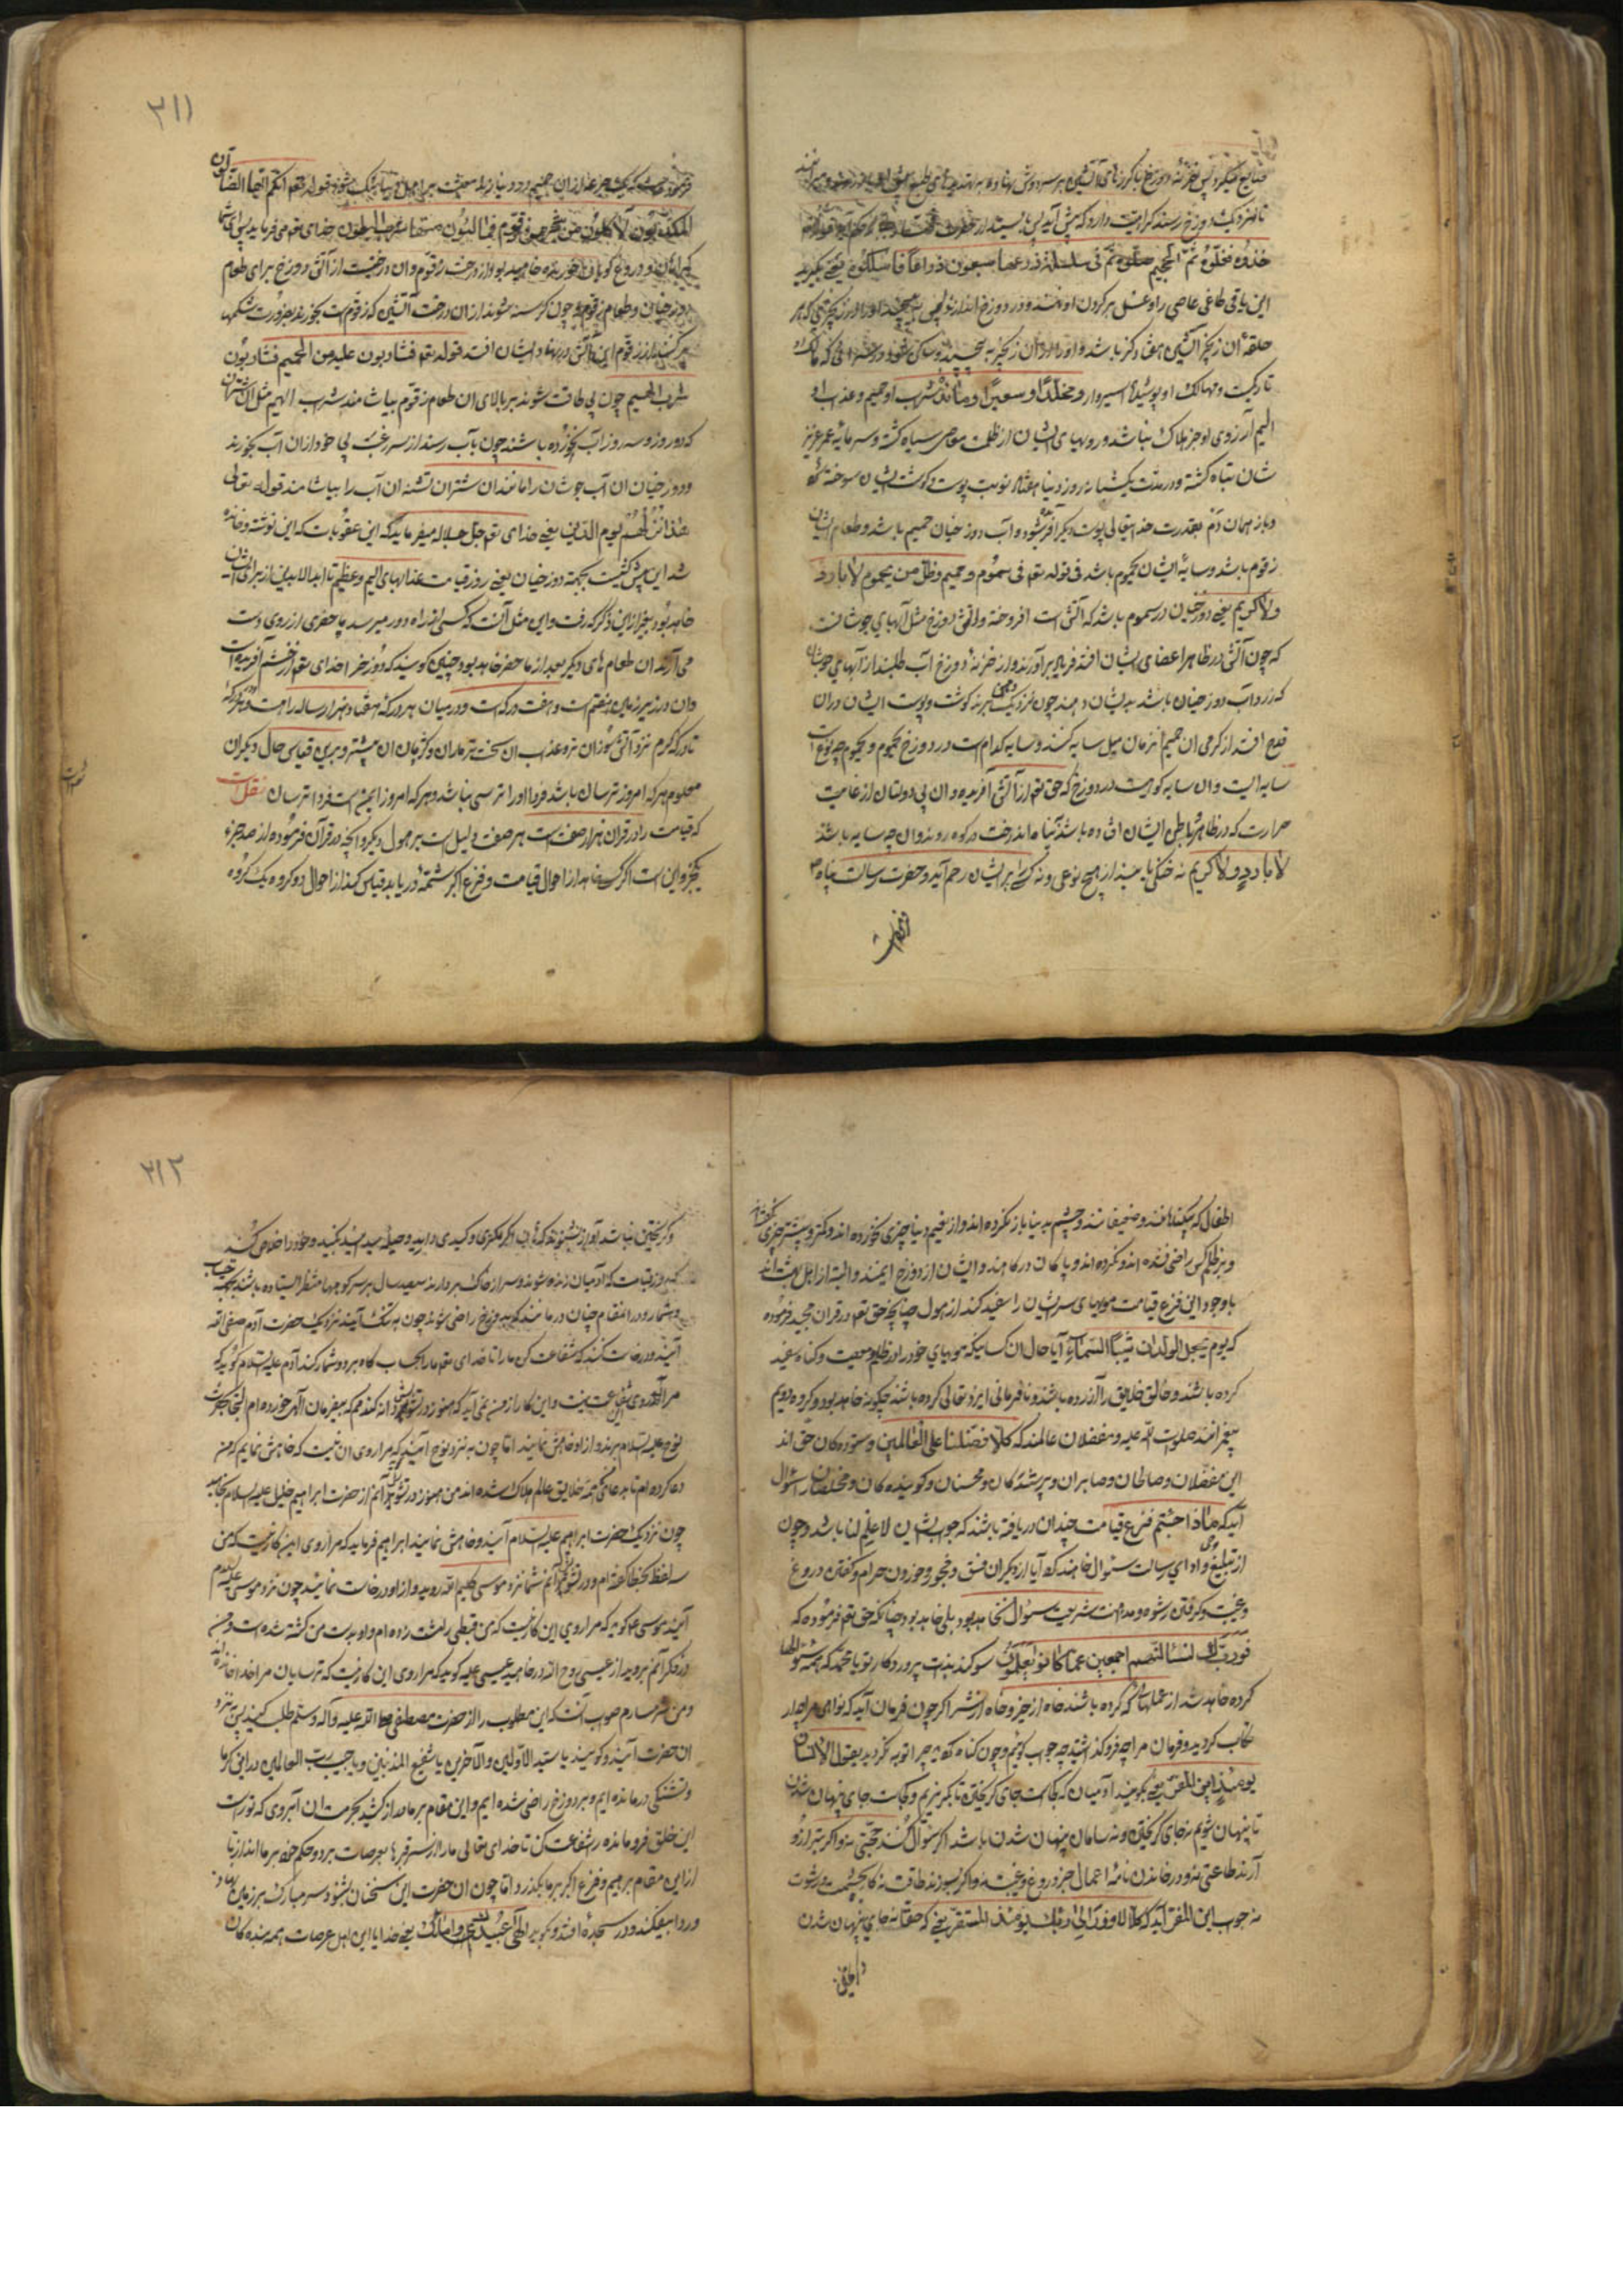 تا نزدیک دوزخ رسند کرامیت دارد که پیش آید پس بایستد از حضرت
خذوه فغلّوه ثمّ الجحیم صلّوه ثمّ فی سلسلة ذرعها سبعون ذراعاً فاسلکوه یعنی بگیرید
این یاقی طاغی عاصی را و غل بر کردن او نهند و در دوزخ اندازند پس
حلقهٔ آن زنجیر آتشین هفتاد کز باشد و او را در آن زنجیر به پیچند
تاریکیت و مهالک او پوشیده اسیر وار و مخلدًا و سعیرًا و مانند شراب او حمیم و عذاب او
الیم آرزوی او جز هلاک نباشد و رویهای ایشان از ظلمت معاصی سیاه کشته و سرمایه عمر عزیز
شان تباه کشته و در مدت یکشبانه روز دنیا هفتاد نوبت پوست و کوشت ایشان سوخته کردد
و باز همان دم بقدرت خدایتعالی پوست دیکر آفریده شود و آب دوزخیان حمیم باشد و طعام ایشان
زقوم باشد و سایهٔ ایشان یحموم باشد فی قوله تعم فی سموم و حمیم و ظل من یحموم لا بارد
ولا کریم یعنی دوزخیان در سموم باشد که آتش است افروخته و آتش دوزخ مثل آبهای جوشان
که چون آتش در ظاهر اعضای ایشان افتد فریاد برآورند و از خزنهٔ دوزخ آب طلبند از آبهای جوشان
که زرداب دوزخیان باشد بدیشان دهند چون نزدیک دهن برند کوشت و پوست ایشان در آن
قدح افتد از کرمی آن حمیم آنزمان میل سایه کنند و سایه کدام است در دوزخ یحموم و یحموم چه نوع است
سایه ایست و آن سایه کوهیست در دوزخ که حق تعم از آتش آفریده و آن بی دولتان از غایت
حرارت که در ظاهر و باطن ایشان افتاده باشد پناه اندرخت در کوه روند و آن چه سایه باشد
لا بارد و لا کریم نه خنکی یابند از هیچ نوعی و نه کسی را بر ایشان رحم آید و حضرت رسالت پناه ۳
فرموده است
۳۱۱
المکذّبون لآکلون من شجر من زقّوم فمالئون منها البطون خدای تعم میفرماید پس ای شما
کمراهان و دروغ کویان خورنده خواهید بود از درخت زقوم و آن درختیست از آتش دوزخ برای طعام
دوزخیان و طعام زقوم و چون کرسنه شوند از آن درخت آتشین که زقوم است بخورند بضرورت شکمها
پر کنند از زقوم این آتش در نهاد ایشان افتد قوله تعم فشاربون علیه من الحمیم فشاربون
شرب الهیم چون بی طاقت شوند بر بالای آن طعام زقوم بیاشامند شراب الهیم مثل آن شتران
که دو روز و سه روز آب نخورده باشند چون بآب رسند از سر رغبت بی خود از آن آب بخورند
و دوزخیان آن آب جوشان را مانند آن شتران تشنه آن آب را بیاشامند قوله تعالی
هذا نزلهم یوم الدین یعنی خدای تعم جل جلاله میفرماید که این عقوبات که این نوشته و خوانده
شد این پیش کشیست بجهت دوزخیان یعنی روز قیامت عذابهای الیم و عظیم تا ابد الابدین از برای ایشان
خواهد بود بغیر از این ذکر که رفت و این مثل آنست که کسی از راه دور میرسد ما حضری از روی دست
می آرند آن طعام های دیکر بعد از ما حضر خواهد بود چنین کویند که دوزخ را خدای تعم از خشم آفریده است
و آن در زیر زمین هفتم است و هفت درکه است و در میان هر درکه هفتاد هزار ساله راه است و هر درکه
تا درکه کرم تر و آتش سوزان تر و عذاب آن سخت تر ماران و کژدمان آن بیشتر و برین قیاس حال دیکران
معلوم هر که امروز ترسان باشد فردا او را ترسی نباشد و هر که امروز ایمن است فردا ترسان نقل است
که قیامت را در قرآن هزار صفت است هر صفت دلیل است بر هول دیکر و آنچه در قرآن فرموده از صد جزء
یکجزو این است اکر کسی خواهد از احوال قیامت و فزع اکبر شمهٔ دریابد قیاس کند از احوال دو کروه یک کروه
اطفال که بیکناهانند و ضعیفانند و چشم به بنیا باز نکرده اند و از نعیم دنیا چیزی نخورده اند و کمتر و بیشتر چیزی
و بر ظلم کس راضی نشده اند و نکرده اند و پاکان در کاهند و ایشان از دوزخ ایمنند و البته از اهل بهشت اند
با وجود این فزع قیامت مویهای سر ایشان را سفید کند از هول چنانچه حق تعم در قرآن مجید فرموده
که یوم یجعل الولدان شیباً السماء آیا حال آن کسانیکه مویهای خود را در ظلم و معصیت و کناه سفید
کرده باشند و خالق خلایق را آزرده باشند و نافرمانی ایزد تعالی کرده باشند چکونه خواهد بود و کروه دویم
پیغمرانند صلوات الله علیه و مفضلان عالمند که کلّا فضّلنا علی العالمین و ستوده کان حق اند
این مفضلان و صالحان و صابران و پرسند کان و محسنان و کوینده کان و مخلصان را سئوال
آید که ماذا اجبتم فزع قیامت چندان دریافته باشند که جواب ایشان لا علم لنا باشد و چون
از تبلیغ وحی و ادای رسالت سئوال خواهند کرد آیا از دیکران فسق و فجور و خوردن حرام و کفتن دروغ
و غیبت و کرفتن رشوه و مداهنت شریعت سئوال نخواهد بود بلی خواهد بود چنانکه حق تعم فرموده که
فوربّک لنسئلنّهم اجمعین عمّا کانوا یعملون سوکند بذات پروردکار تو یا محمد که همه سئوالها
کرده خواهد شد از عملهای که کرده باشند خواه از خیر و خواه از شر اکر چون فرمان آید که نواهی مرا چرا
مرتکب کردید و فرمان مرا چه فرو کذاشتید چه جواب کوئیم و چون کناه کردید چرا توبه نکردید یقول الانسان
یومئذ این المفرّ یعنی بکویند آدمیان که کجاست جای کریختن تا بکریزیم و کجاست جای پنهان شدن
تا پنهان شویم نه جای کریختن و نه سامان پنهان شدن باشد اکر سئوال کنند حجتی نه و اکر بترازو
آرند طاعتی نه و در خواندن نامهٔ اعمال جز دروغ و غیبت نه و اکر بسوزند طاقت نه
نه جواب این المفر آید که کلّا لا وزر الی ربّک یومئذ المستقر یعنی که حقا نه جای پنهان شدن
۳۱۲
و کریختن نباشد
که روز قیامت که آدمیان زنده شوند و سر از خاک بردارند سیصد سال بر سر کوچها منتظر ایستاده باشند بجهت حساب
و شمار و در آنمقام چنان درمانند که به دوزخ راضی شوند چون به تنک آیند نزدیک حضرت آدم صفی الله
آیند و درخواست کنند که شفاعت کن ما را تا خدای تعم ما را بحساب کاه برد و شمار کند آدم علیه السلام کوید که
مرا آن روی شفاعت نیست و این کار از من نمی آید که هنوز در تشویش آن دانه کندمم که بیفرمان الهی خورده ام التجا بحضرت
نوح علیه السلام برند و از او خواهش نمایند اما چون به نزد نوح آیند که مرا روی آن نیست که خواهش نمایم که من
دعا کرده ام تا بدعای من همه خلایق عالم هلاک شده اند من هنوز در تشویش آنم از حضرت ابراهیم خلیل علیه السلام بخواهید
چون نزدیک حضرت ابراهیم علیه السلام آیند و خواهش نمایند ابراهیم فرماید که مرا روی این کار نیست که من
سه لفظ بخطا کفته ام و در تشویش آنم شما نزد موسی کلیم الله روید و از او درخواست نمائید چون نزد موسی علیه السلام
آیند موسی ع کوید که مرا روی این کار نیست که من قبطی را مشت زده ام و او بدست من کشته شده است و من
در فکر آنم بروید از عیسی روح الله درخواهید عیسی علیه کوید که مرا روی این کار نیست که ترسایان مرا خدا خوانده اند
و من شرمسارم صواب آنست که این مطلوب را از حضرت مصطفی صلی الله علیه و آله و سلم طلب کنید پس نزد
آن حضرت آیند و کویند یا سید الاولین و الآخرین یا شفیع المذنبین و یا حبیب رب العالمین در این کرما
و تشنکی درمانده ایم و بدوزخ راضی شده ایم و این مقام بر ما دراز کشید بحرمت آن آبروی که تو راست
این خلق فرومانده را شفاعت کن تا خدای تعالی ما را از سر قبرها بعرصات برد و حکم خود بر ما اندازد تا
از این مقام برهیم و فزع اکبر بر ما بکذرد اما چون آن حضرت این سخنان بشنود سر مبارک بر زمین نهاد و
و ردا بیفکند و در سجده افتد و کوید الهی عبیدک و امائک یعنی خدایا این اهل عرصات همه بنده کان